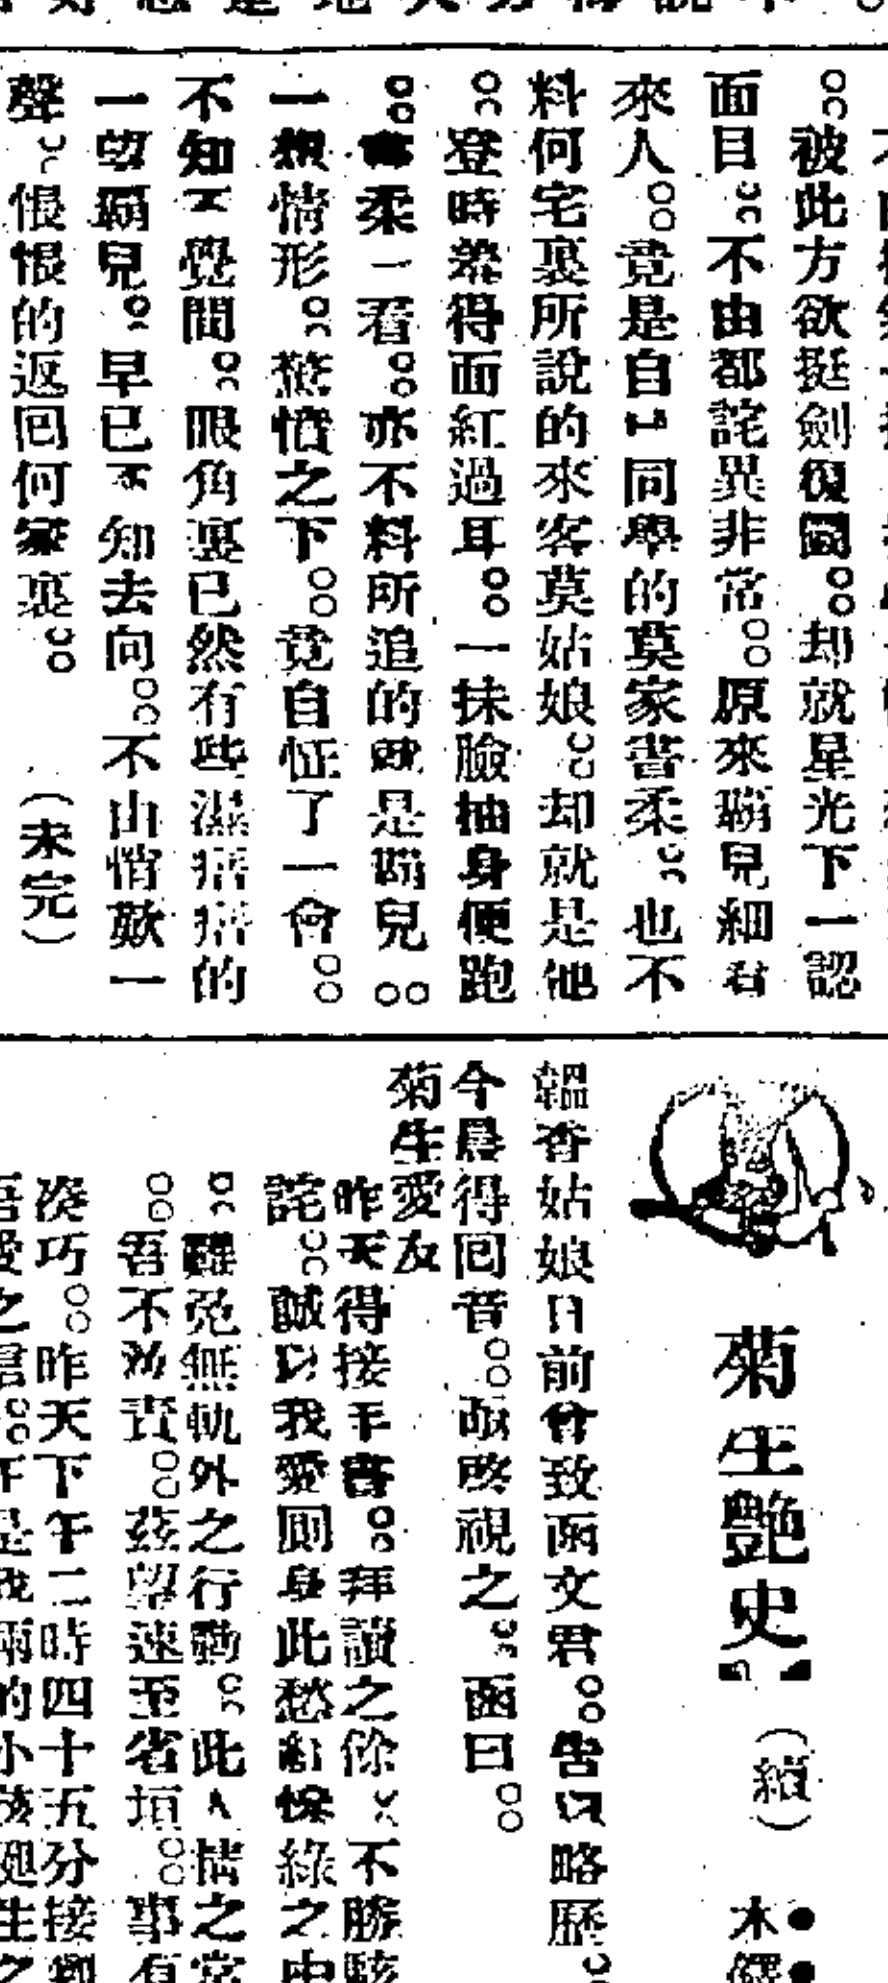 。被此方欲挺劍復國。却就星光下一認
面目。不由都詫異非常。原來瑚兒細看
來人。竟是自己同學的莫家書柔。也不
料何宅裏所說的來客莫姑娘。却就是他
。登時羞得面紅過耳。一抹臉抽身便跑
。書柔一看。亦不料所追的就是瑚兒。
一想情形。慙憤之下。竟自怔了一會。
不知不覺間。眼角裏已然有些濕瘩瘩的
一望瑚兒。早已不知去向。不由悄歎一
聲。恨恨的返回何家裏。 (未完)
菊生艷史 (續) 木鐸
韞香姑娘日前曾致函文君。告以略歷。
今晨得回音。啟視之。函曰。
菊生愛友
昨天得接手書。拜讀之餘。不勝駭
詫。誠以我愛側身此愁紅慘綠之中
。難免無軌外之行動。此人情之常
。吾不汝責。茲望速至省垣。事有
湊巧。昨天下午二時四十五分接鄉